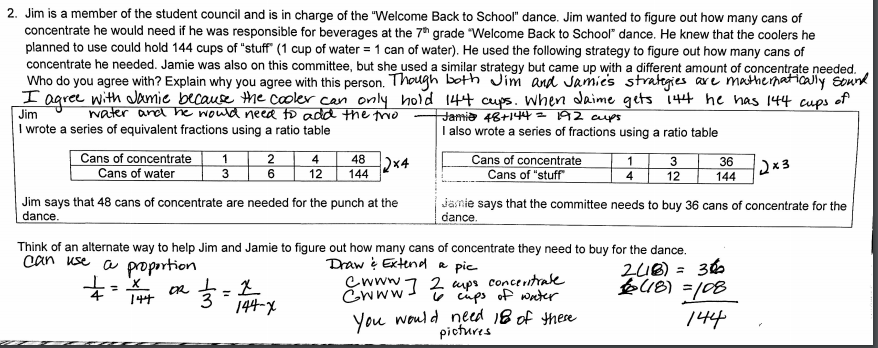 2. Jim is a member of the student council and is in charge of the “Welcome Back to School” dance. Jim wanted to figure out how many cans of
concentrate he would need if he was responsible for beverages at the 7th grade “Welcome Back to School” dance. He knew that the coolers he
planned to use could hold 144 cups of “stuff” (1 cup of water = 1 can of water). He used the following strategy to figure out how many cans of
concentrate he needed. Jamie was also on this committee, but she used a similar strategy but came up with a different amount of concentrate needed.
Who do you agree with? Explain why you agree with this person. Though both Jim and Jamie's strategies are mathematically sound
I agree with Jamie because the cooler can only hold 144 cups. When Jaime gets 144 he has 144 cups of
water and he would need to add the two — 48+144 = 192 cups
Jim
I wrote a series of equivalent fractions using a ratio table
Cans of concentrate 1 2 4 48
Cans of water 3 6 12 144
x4
Jim says that 48 cans of concentrate are needed for the punch at the
dance.
Jamie
I also wrote a series of fractions using a ratio table
Cans of concentrate 1 3 36
Cans of “stuff” 4 12 144
x3
Jamie says that the committee needs to buy 36 cans of concentrate for the
dance.
Think of an alternate way to help Jim and Jamie to figure out how many cans of concentrate they need to buy for the dance.
can use a proportion
1/4 = x/144 OR 1/3 = x/144-x
Draw & Extend a pic
CWWW ] 2 cups concentrate
CWWW ] 6 cups of water
You would need 18 of these
pictures
2(18) = 36
6(18) = 108
144